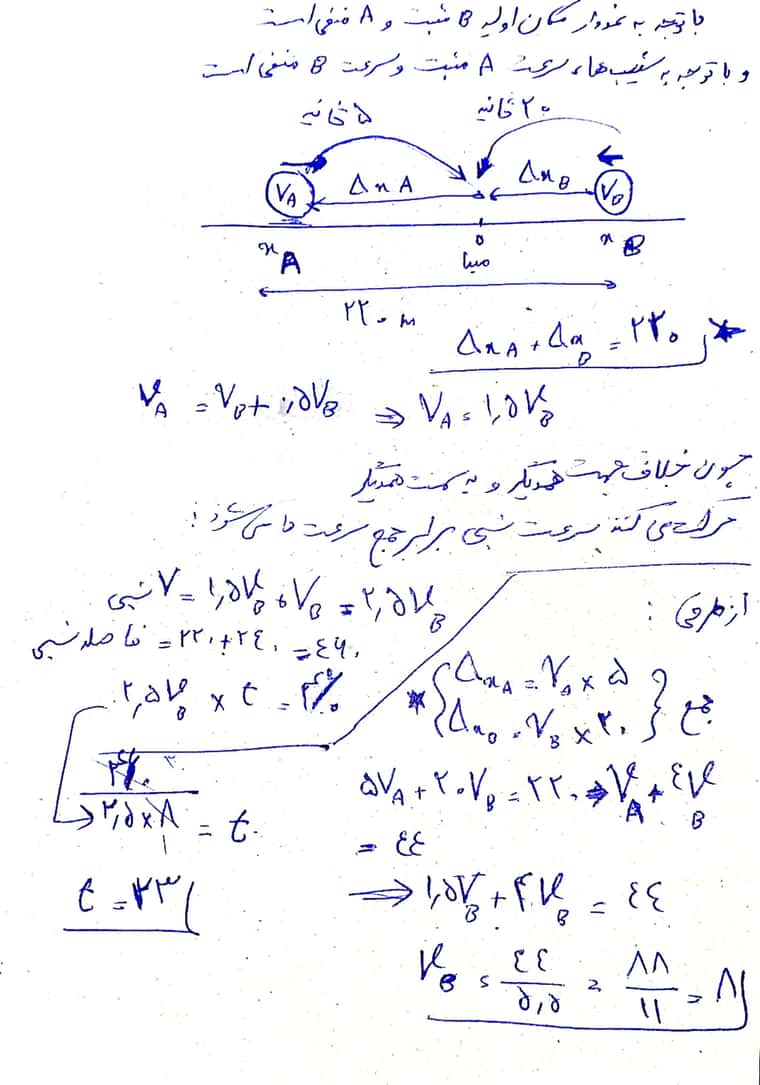 با توجه به نمودار مکان اولیه B مثبت و A منفی است
و با توجه به شیب‌ها، سرعت A مثبت و سرعت B منفی است
۵ ثانیه
۲۰ ثانیه
VA
ΔxA
ΔxB
VB
xA
۰
مبدا
xB
۲۲۰ m
ΔxA + ΔxB = ۲۲۰
VA = VB + ۰٫۵VB ⇒ VA = ۱٫۵VB
چون خلاف جهت همدیگر و به سمت همدیگر
حرکت می کنند سرعت نسبی برابر جمع سرعت ها می شود:
V نسبی = ۱٫۵VB + VB = ۲٫۵VB
فاصله نسبی = ۲۲۰ + ۲۴۰ = ۴۶۰
۲٫۵VB × t = ۴۶۰
۴۶۰ / ۲٫۵×۸ = t
t = ۲۳
از طرفی:
ΔxA = VA × ۵
ΔxB = VB × ۲۰
جمع
۵VA + ۲۰VB = ۲۲۰ ⇒ VA + ۴VB
= ۴۴
⇒ ۱٫۵VB + ۴VB = ۴۴
VB = ۴۴/۵٫۵ = ۸۸/۱۱ = ۸